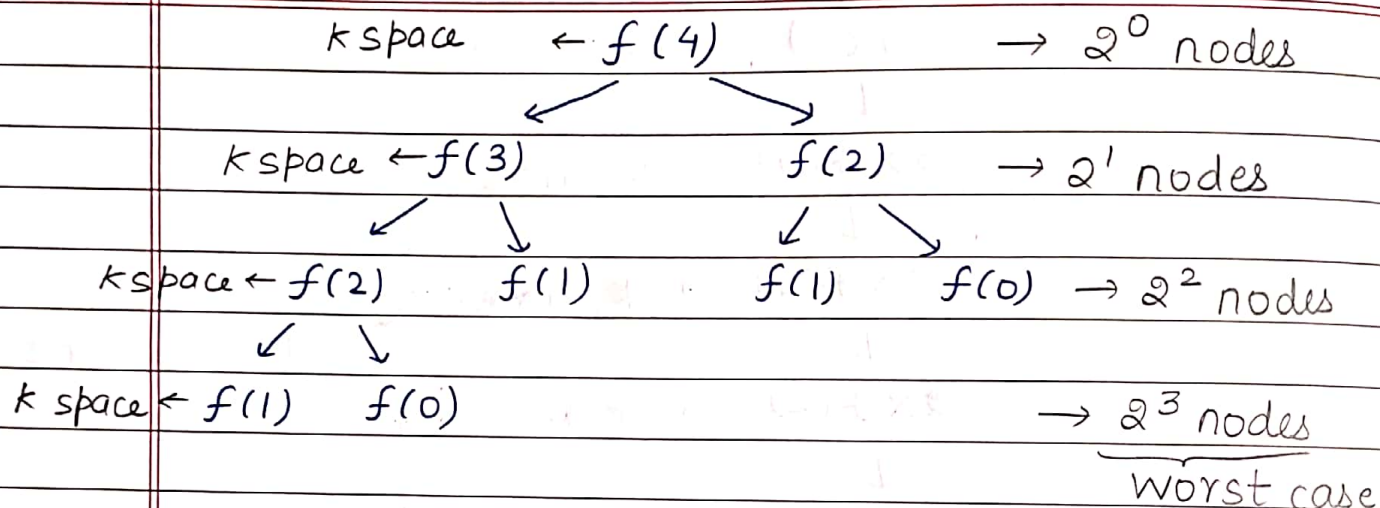 k space ← f(4) → 2⁰ nodes
k space ← f(3) f(2) → 2¹ nodes
k space ← f(2) f(1) f(1) f(0) → 2² nodes
k space ← f(1) f(0) → 2³ nodes
worst case